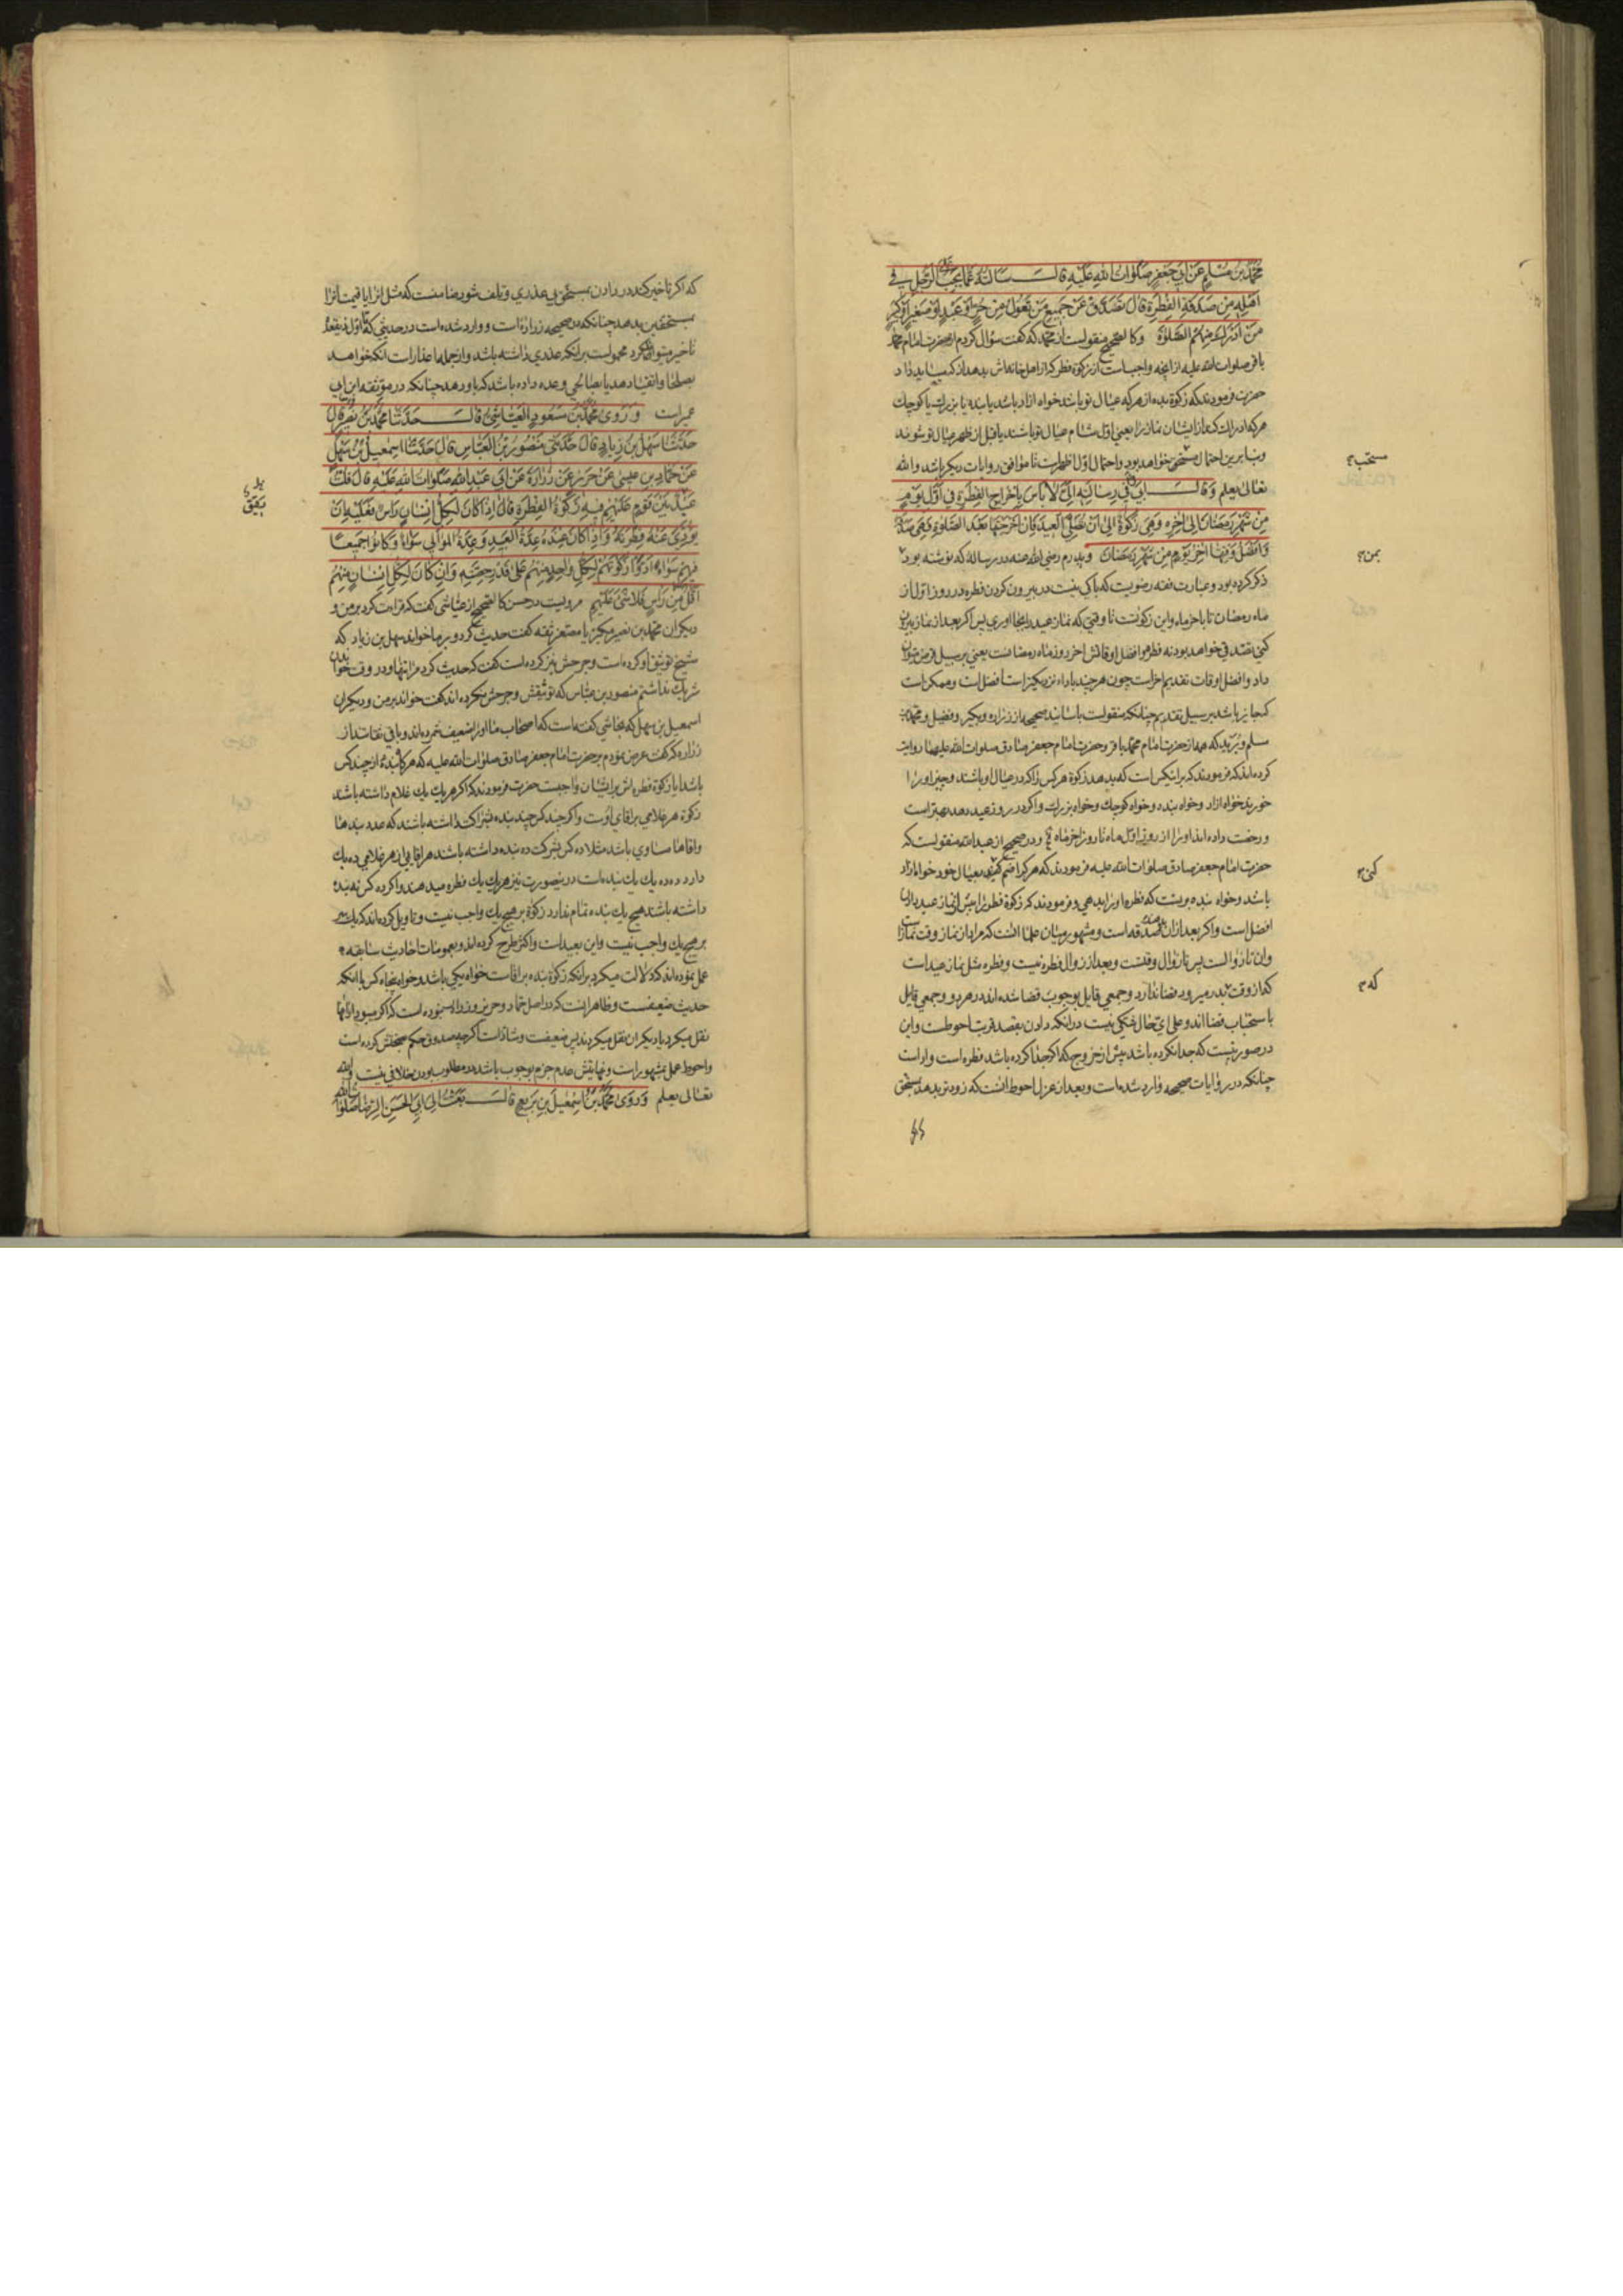 محمد بن مسلم عن ابی جعفر صلوات الله علیه قال سالته عما یجب علی الرجل فی
اهله من صدقة الفطرة قال تصدق عن جمیع من تعول من حر او عبد او صغیر او کبیر
من ادرک منهم الصلوة و کالصحیح منقولست از محمد که گفت سؤال کردم از حضرت امام محمد
باقر صلوات الله علیه از انچه واجب است از زکوة فطر که از اهل خانه‌اش بدهد
حضرت فرمودند که زکوة بده از هر که عیال تو باشد خواه ازاد باشد یا بنده یا بزرک یا کوچک
هر که ادراک کند از ایشان نماز را یعنی اول شام عیال تو باشند یا قبل از ظهر عیال تو شوند
و بنا برین احتمال مستحق خواهد بود و احتمال اول اظهر است تا موافق روایات دیکر باشد و الله
تعالی یعلم و قال ابی فی رسالته الی لا باس باخراج الفطرة فی اول یوم
من شهر رمضان الی اخره و هی زکوة الی ان تصلی العید فان اخرجتها بعد الصلوة فهی صدقة
و افضل وقتها اخر یوم من شهر رمضان و پدرم رضی الله عنه در رساله که نوشته بود
ذکر کرده بود و عبارت فقه رضویت که باکی نیست در بیرون کردن فطره در روز اول از
ماه رمضان تا باخر ماه و این زکوتست تا وقتی که نماز عید را بجا اوری پس اکر بعد از نماز بیرون
کنی تصدقی خواهد بود نه فطره و افضل اوقاتش اخر روز ماه رمضانست یعنی بر سبیل قرض میتوان
داد و افضل اوقات تقدیم اخر است چون هر چند باداء نزدیکتر است افضل است و ممکن است
که جایز باشد بر سبیل تقدیم چنانکه منقولست باسانید صحیحه از زراره و بکیر و فضیل و محمد بن
مسلم و برید که هم از حضرت امام محمد باقر و حضرت امام جعفر صادق صلوات الله علیهما روایت
کرده‌اند که فرمودند که بر اینکس است که بدهد زکوة هر کس را که در عیال او باشند
خورید خواه ازاد و خواه بنده و خواه کوچک و خواه بزرک و اکر در روز عید دهد بهتر است
و رخصت داده‌اند او را از روز اول ماه تا روز اخر ماه و در صحیح از عبد الله منقولست که
حضرت امام جعفر صادق صلوات الله علیه فرمودند که هر کرا ضم کنید بعیال خود خواه ازاد
باشد و خواه بنده بر تست که فطره او را بدهی و فرمودند که زکوة فطر را پیش از نماز عید دادن
افضل است و اکر بعد از ان بدهند صدقه است و مشهور میان علما انست که مراد از نماز وقت نماز است
و ان تا زوالست پس تا زوال وقتست و بعد از زوال فطره نیست و فطره مثل نماز عید است
که از وقت بدر میرود قضا ندارد و جمعی قایل بوجوب قضا شده‌اند در هر دو و جمعی قایل
باستحباب قضا اند و علی ای حال شکی نیست در انکه دادن بقصد قربت احوطست و این
در صورتیست که جدا نکرده باشد پیش از خروج که اکر جدا کرده باشد فطره است و ادا است
چنانکه در روایات صحیحه وارد شده است و بعد از عزل احوط انست که زود تر بدهد بمستحق
مستحب
بمن
کنی
که
که اکر تاخیر کند در دادن بمستحق بی عذری و تلف شود ضامنست که مثل انرا یا قیمت انرا
بمستحقین بدهد چنانکه در صحیحه زراره است و وارد شده است در حدیثی که تا اول ذیقعده
تاخیر میتوان کرد محمولست بر انکه عذری داشته باشد و از جمله اعذار است انکه خواهد
بصلحا و اتقیا دهد یا بصالحی وعده داده باشد که باو دهد چنانکه در موثقه ابن ابی
عمیر است و روی محمد بن مسعود العیاشی قال حدثنا محمد بن نصیر قال
حدثنا سهل بن زیاد قال حدثنی منصور بن العباس قال حدثنا اسمعیل بن سهل
عن حماد بن عیسی عن حریز عن زرارة عن ابی عبد الله صلوات الله علیه قال قلت
عبد بین قوم علیهم فیه زکوة الفطرة قال اذا کان لکل انسان راس فعلیه ان
یؤدی عنه فطرته و اذا کان عنده عدة العبید و عدة الموالی سواء و کانوا جمیعا
فیهم سواء ادوا زکوتهم لکل واحد منهم علی قدر حصته و ان کان لکل انسان منهم
اقل من راس فلا شیء علیهم مرویست در حسن کالصحیح از عیاشی که گفت که قراءت کرد بر من و
دیکران محمد بن نصیر و یا معتبر ثقه گفت حدیث کرد و بر ما خواند سهل بن زیاد که
شیخ توثیق او کرده است و جرحش نیز کرده است گفت که حدیث کرد مرا تنها و در وقت خواندن
شریک نداشتم منصور بن عباس که توثیقش و جرحش نکرده‌اند گفت خواند بر من و دیکران
اسمعیل بن سهل که نجاشی گفته است که اصحاب ما او را ضعیف شمرده‌اند و باقی ثقاتند از
زراره که گفت عرض نمودم بر حضرت امام جعفر صادق صلوات الله علیه که هر کاه بنده از چند کس
باشد ایا زکوة فطره‌اش بر ایشان واجبست حضرت فرمودند که اکر هر یک یک غلام داشته باشند
زکوة هر غلامی بر اقای اوست و اکر چند کس چند بنده بشراکت داشته باشند که عدد بندها
و اقاها مساوی باشد مثلا ده کس بشرکت ده بنده داشته باشند هر اقایی از هر غلامی ده یک
دارد و ده ده یک یک بنده است در ینصورت نیز هر یک یک فطره میدهند و اکر ده کس نه بنده
داشته باشند هیچ یک بنده تمام ندارد زکوة بر هیچ یک واجب نیست و تاویل کرده‌اند که یک سر
بر هیچ یک واجب نیست و این بعید است و اکثر طرح کرده‌اند و بعمومات احادیث سابقه
عمل نموده‌اند که دلالت میکرد بر انکه زکوة بنده بر اقاست خواه یکی باشد و خواه پنجاه کس با انکه
حدیث ضعیفست و ظاهر انست که در اصل حماد و حریز و زراره نبوده است که اکر میبود از انها
نقل میکرد یا دیکران نقل میکردند پس ضعیفست و شاذ است اکر چه صدوق حکم بصحتش کرده است
و احوط عمل بمشهور است و نهایتش عدم جزم بوجوب باشد در مطلوب بودن خلافی نیست و الله
تعالی یعلم و روی محمد بن اسمعیل بن بزیع قال بعثت الی ابی الحسن الرضا صلوات الله